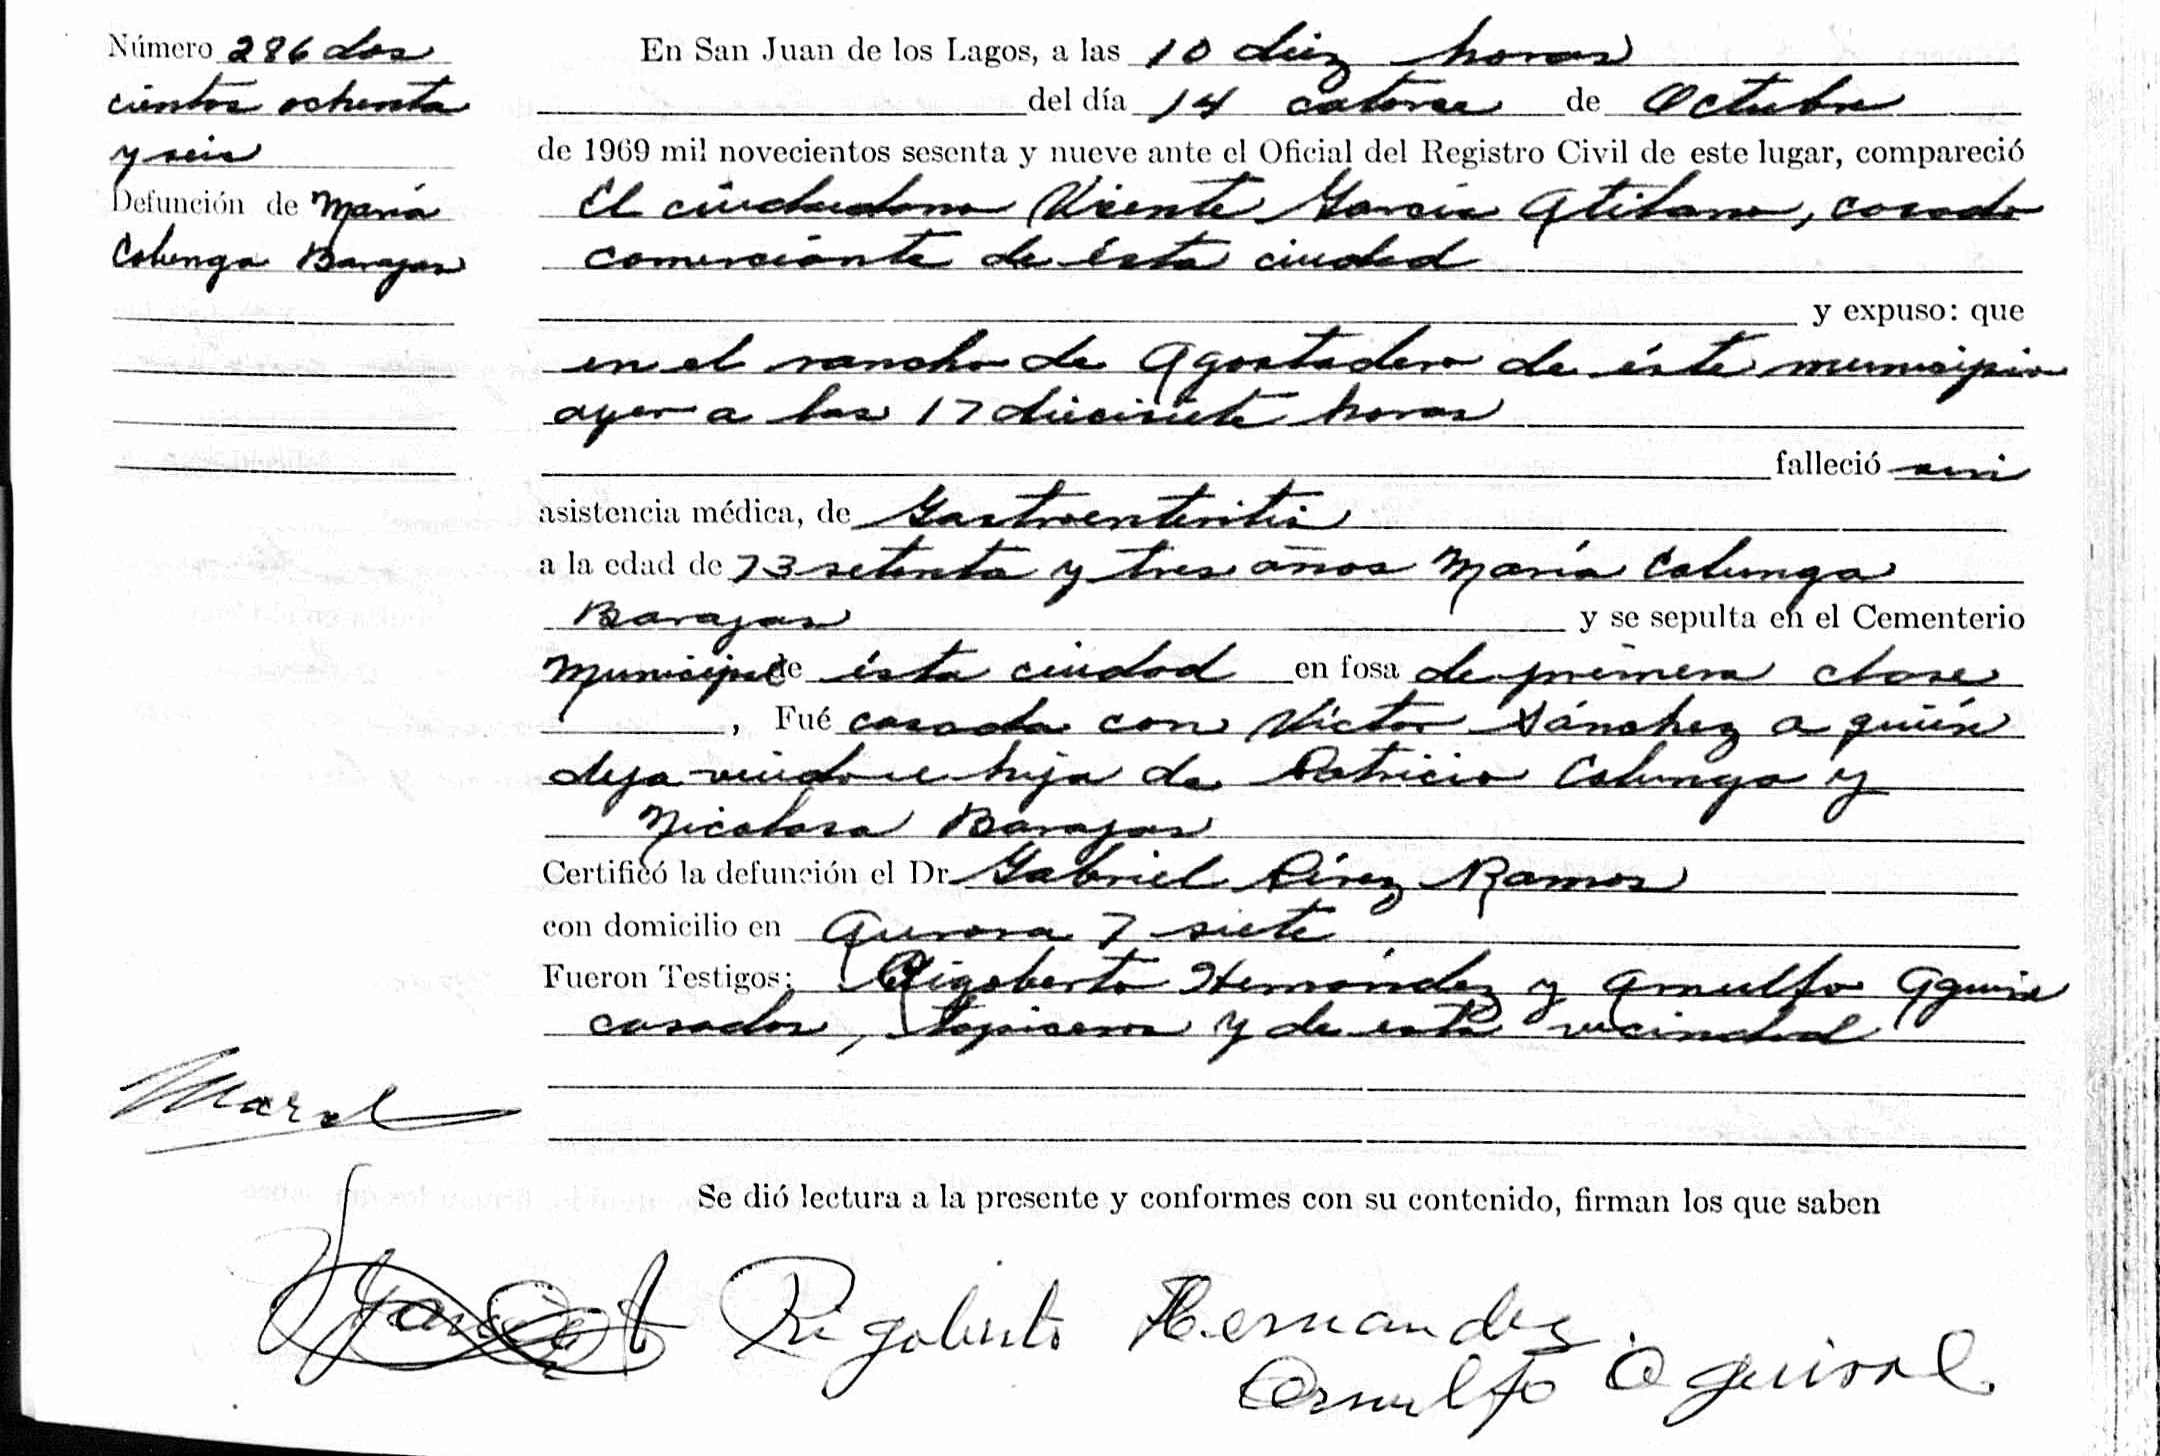 Número 286 dos
cientos ochenta
y seis
Defunción de María
Colunga Barajas
En San Juan de los Lagos, a las 10 diez horas
del día 14 catorce de Octubre
de 1969 mil novecientos sesenta y nueve ante el Oficial del Registro Civil de este lugar, compareció
El ciudadano Vicente García Atilano, casado
comerciante de ésta ciudad
y expuso: que
en el rancho de Agostadero de éste municipio
ayer a las 17 diecisiete horas
falleció sin
asistencia médica, de Gastroenteritis
a la edad de 73 setenta y tres años María Colunga
Barajas y se sepulta en el Cementerio
Municipal de ésta ciudad en fosa de primera clase
, Fué casada con Víctor Sánchez a quién
deja viudo e hija de Patricio Colunga y
Nicolasa Barajas
Certificó la defunción el Dr. Gabriel Pérez Ramos
con domicilio en Aurora 7 siete
Fueron Testigos: Rigoberto Hernández y Arnulfo Aguirre
casados, tapiceros y de esta vecindad
Se dió lectura a la presente y conformes con su contenido, firman los que saben
Rigoberto Hernandez.
Arnulfo Aguirre